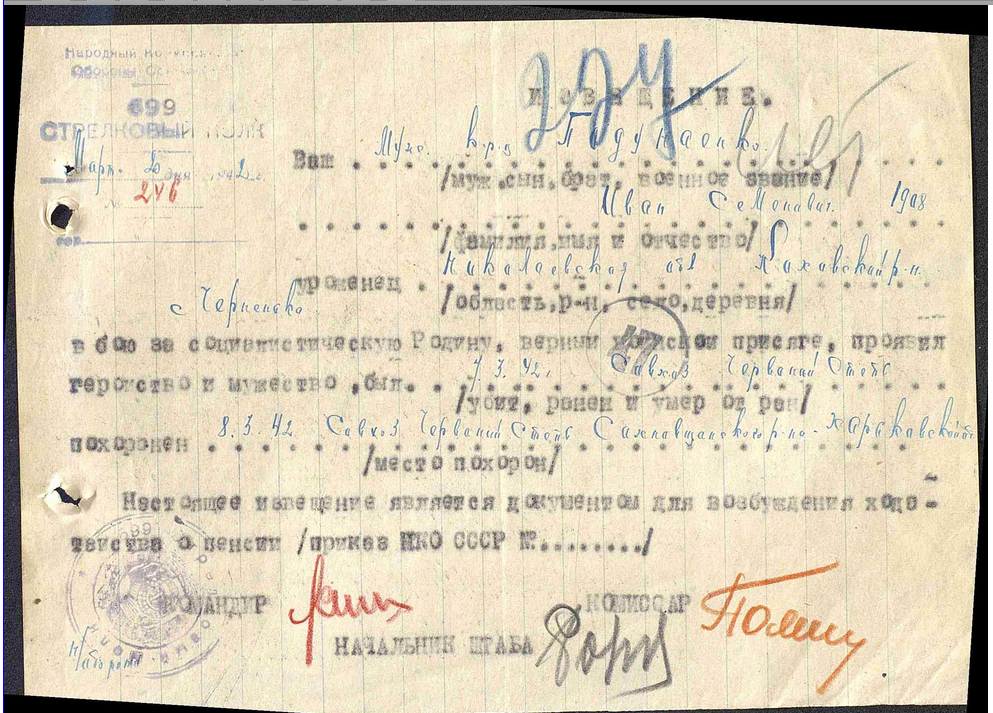 Народный
Обороны
699
СТРЕЛКОВЫЙ ПОЛК
Март
№ 246
224
ИЗВЕЩЕНИЕ.
Ваш Муж. кр-ц Подунаенко.
/муж, сын, брат, военное звание/
Иван Семенович 1908
/фамилия, имя и отчество/
уроженец Николаевская обл Каховский р-н.
/область, р-н, село, деревня/
с Черненко
47
в бою за социалистическую Родину, верный воинской присяге, проявил
героиство и мужество, был 7.3.42г Савхоз Черваний Степ
/убит, ранен и умер от ран/
похоронен 8.3.42 Савхоз Червоний Степь Сахнавщанского р-на Харьковской об
/место похорон/
Настоящее извещение является документом для возбуждения хода-
тайства о пенсии /приказ НКО СССР №........./
699
КОМАНДИР
КОМИССАР
НАЧАЛЬНИК ШТАБА